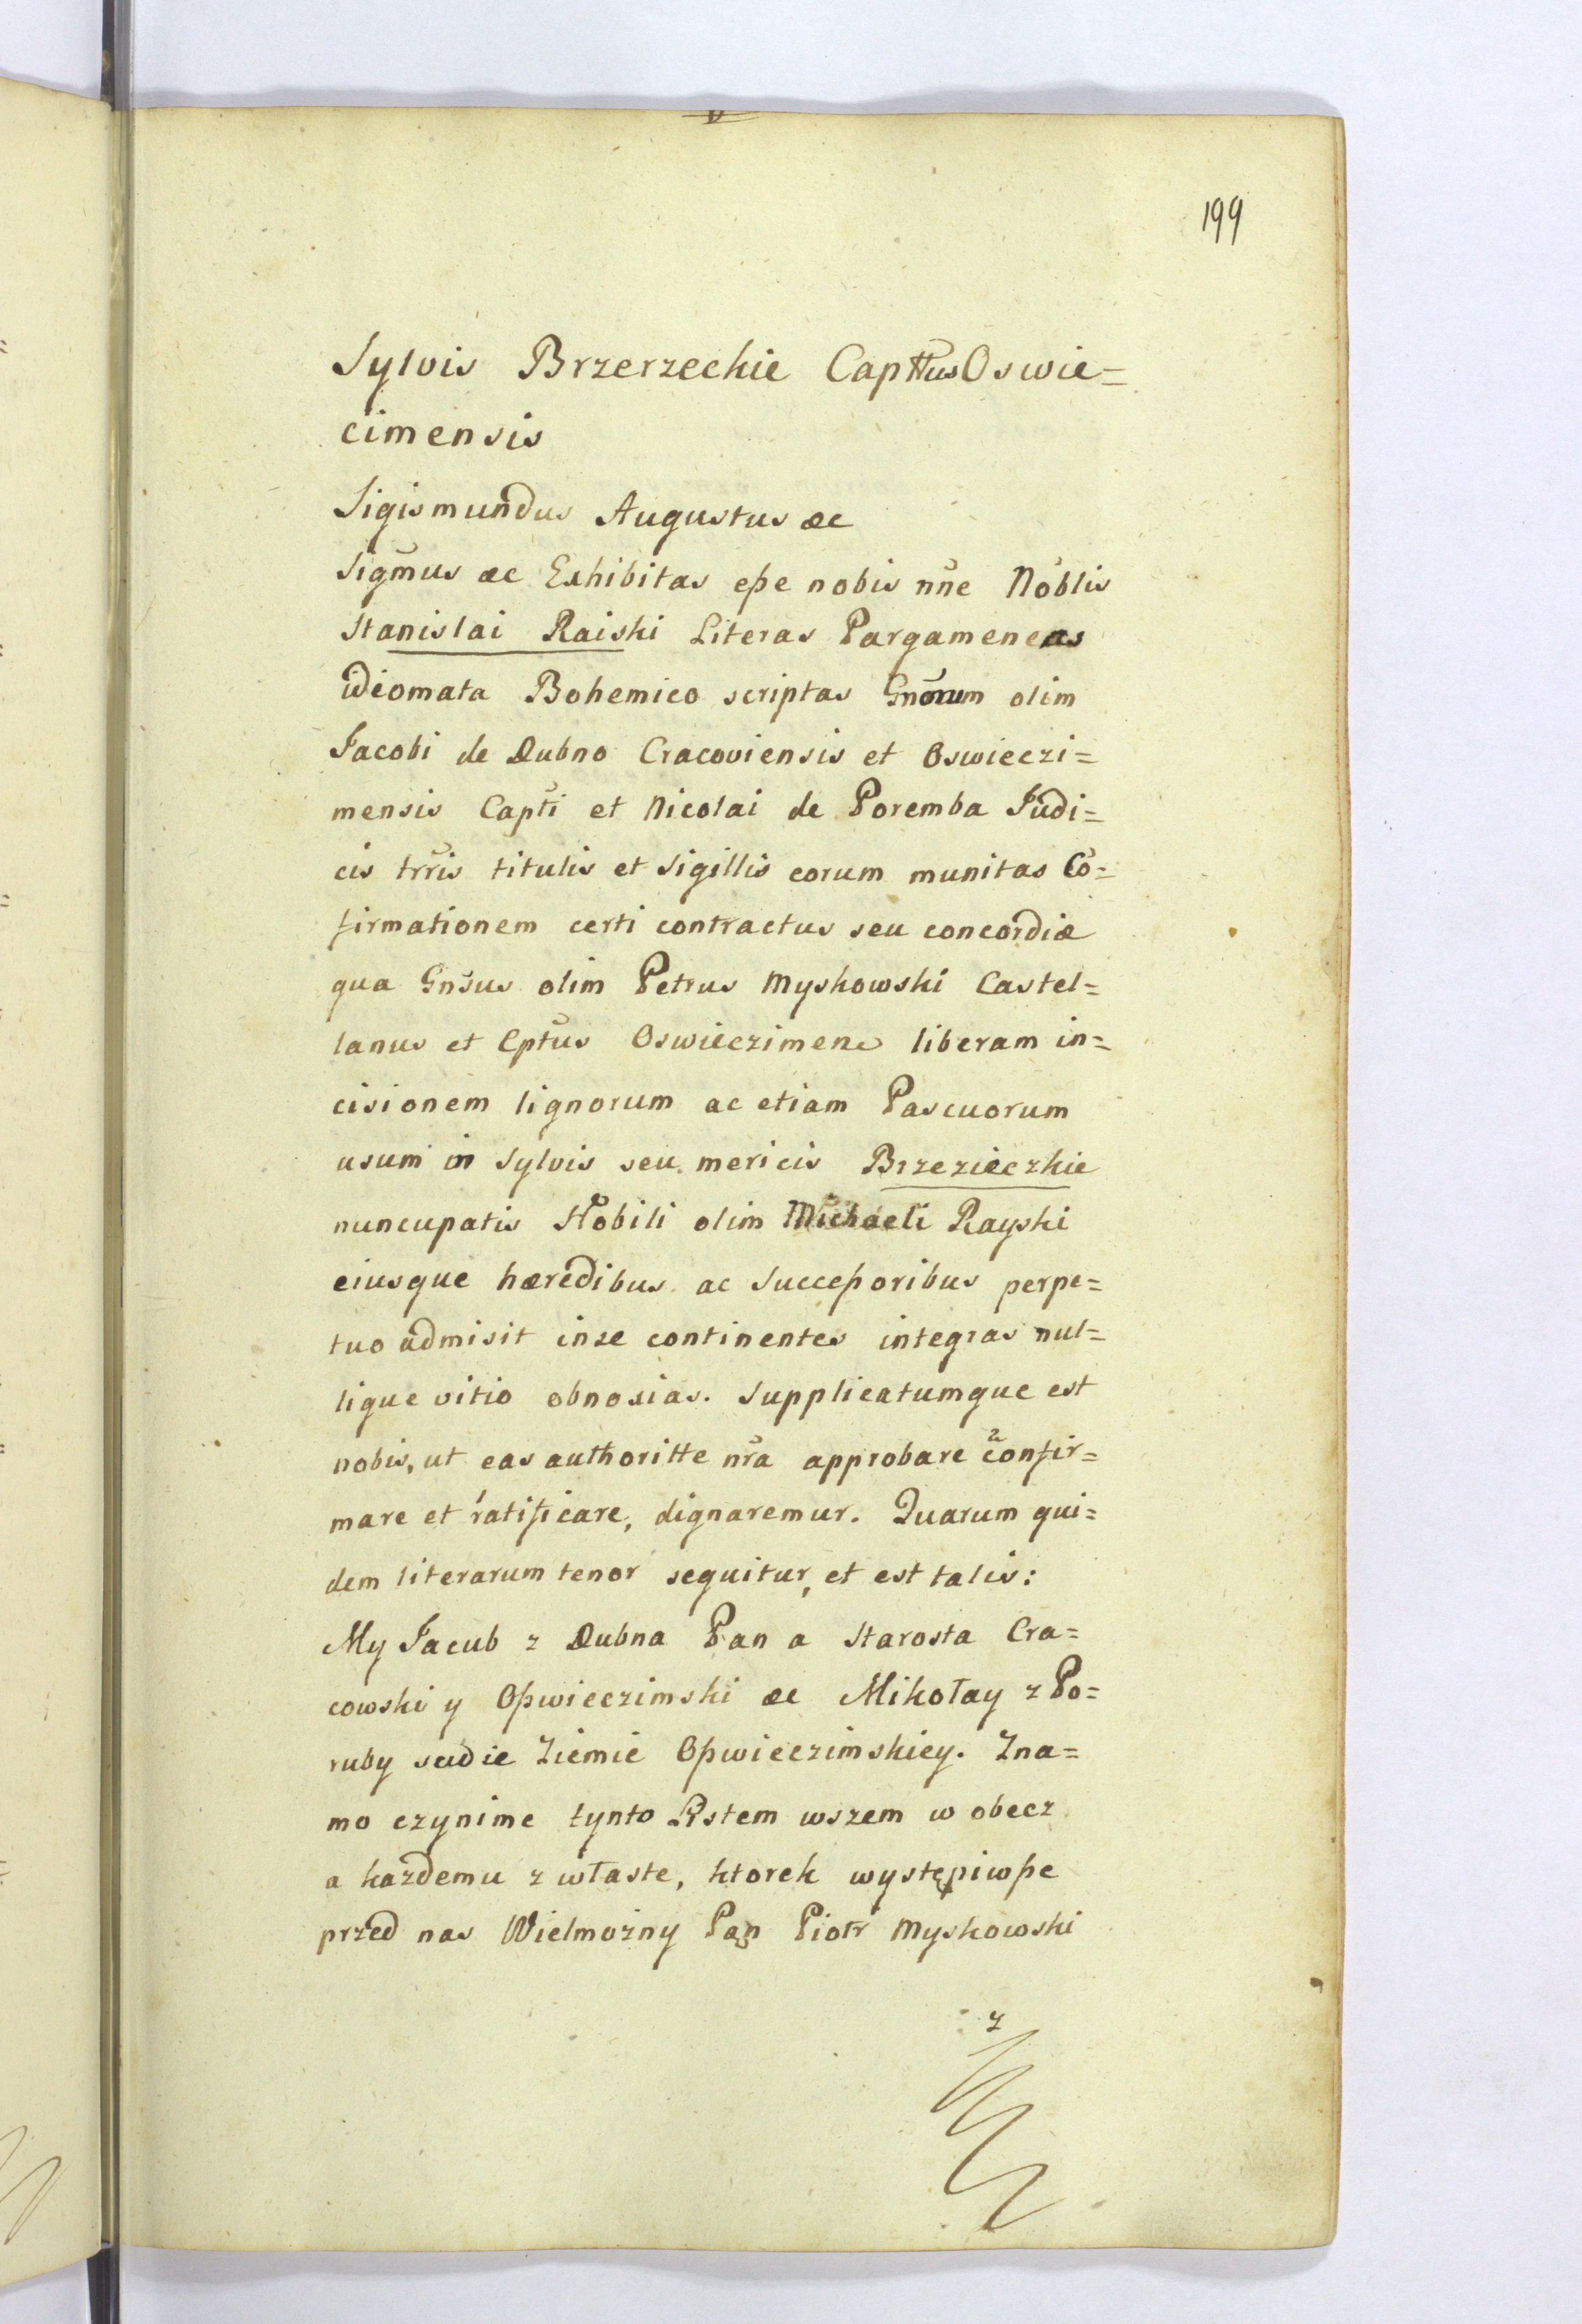 199
Sylvis Brzerzeckie Capttus Oswie=
cimensis
Sigismundus Augustus æc
Sigm̄us æc Exhibitas eße nobis nn̄e Nōblis
Stanislai Raiski Literas Pargameneas
idiomata Bohemico scriptas Gn̄orum olim
Jacobi de Dubno Cracoviensis et Oswieczi=
mensis Capt̄i et Nicolai de Poremba Judi=
cis trr̄is titulis et Sigillis eorum munitas Cō=
firmationem certi contractus seu concordiæ
qua Gns̄us olim Petrus Myskowski Castel=
lanus et Cpt̄us Oswieczimene liberam in=
cisionem lignorum ac etiam Pascuorum
usum in Sylvis seu mericis Brzezieczkie
nuncupatis Nobili olim Michaeli Rayski
eiusque hæredibus ac Succeßoribus perpe=
tuo admisit inse continentes integras nul=
lique vitio obnoxias. Supplicatumque est
nobis, ut eas authoritte nr̄a approbare confir=
mare et ratificare, dignaremur. Quarum qui=
dem literarum tenor sequitur, et est talis:
My Jacub z Dubna Pan a Starosta Cra=
cowski y Oßwieczimski æc Mikołay z Po=
ruby sudie Ziemie Oßwieczimskiey. Zna=
mo czynime tynto Listem wszem w obecz
a kazdemu z właste, ktorek występiwße
przed nas Wielmożny Pan Piotr Myskowski
z